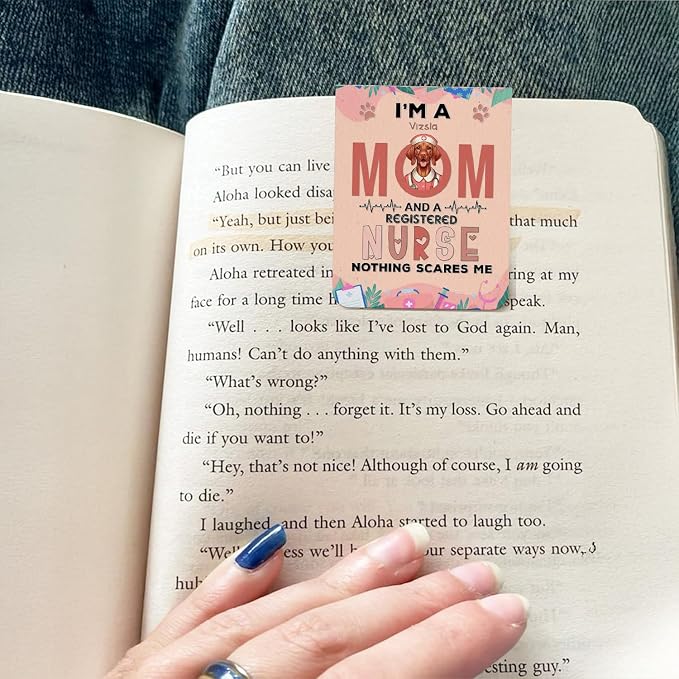 I'M A
Vizsla
MOM
AND A
REGISTERED
NURSE
NOTHING SCARES ME
“But you can live
Aloha looked disa
“Yeah, but just bei that much
on its own. How you
Aloha retreated in ring at my
face for a long time h speak.
“Well . . . looks like I’ve lost to God again. Man,
humans! Can’t do anything with them.”
“What’s wrong?”
“Oh, nothing . . . forget it. It’s my loss. Go ahead and
die if you want to!”
“Hey, that’s not nice! Although of course, I am going
to die.”
I laughed, and then Aloha started to laugh too.
“Well ess we’ll our separate ways now,
hub
esting guy.”